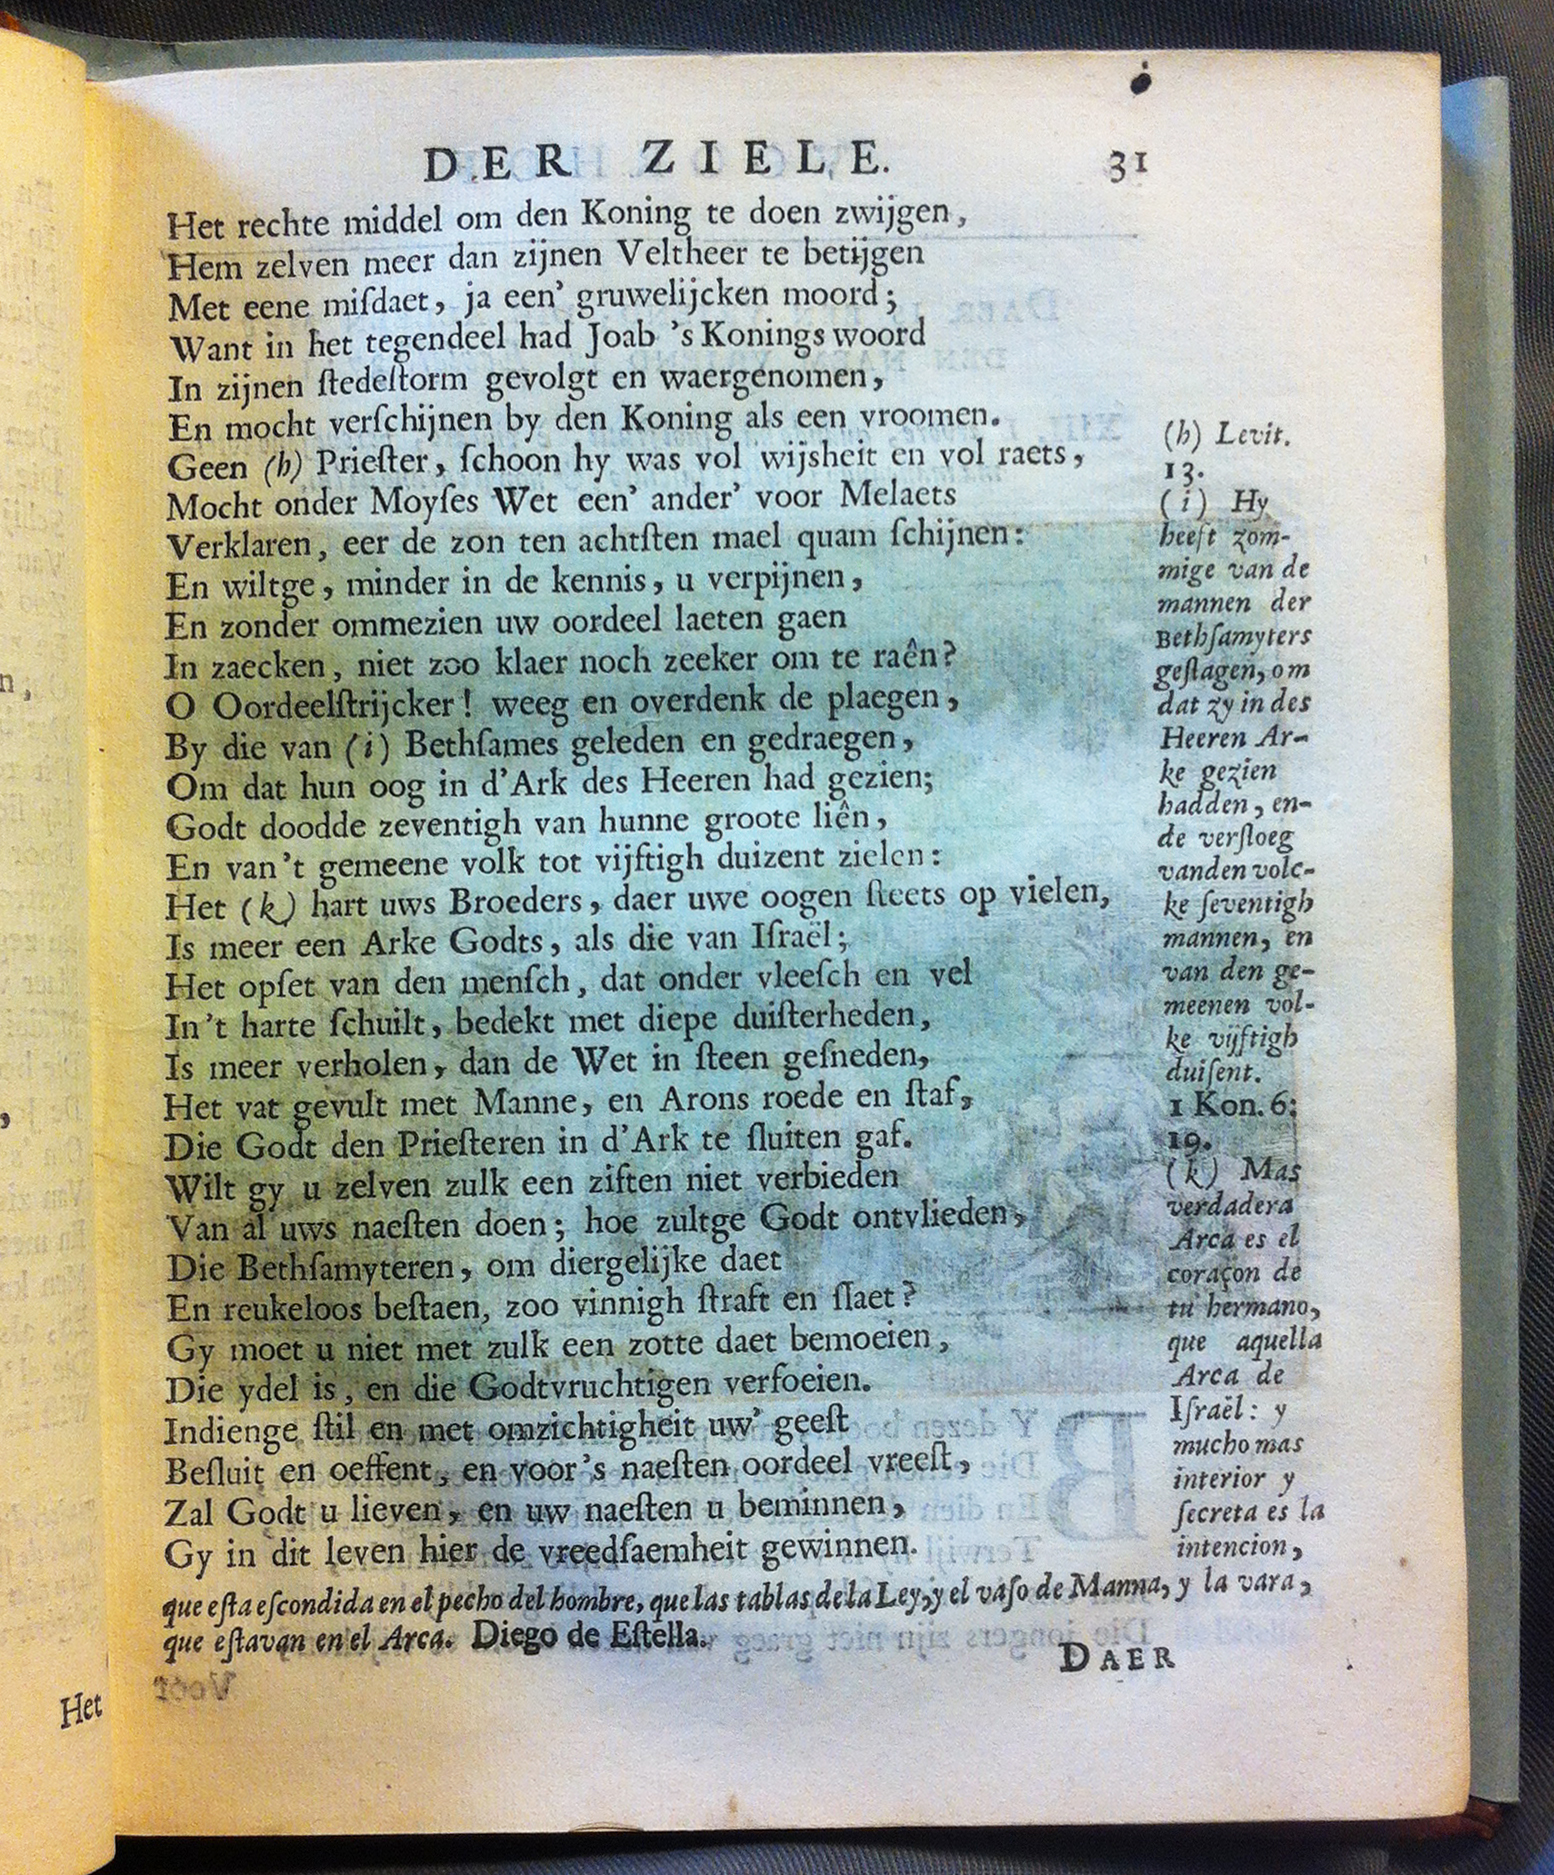 DER ZIELE. 31
Het rechte middel om den Koning te doen zwijgen,
Hem zelven meer dan zijnen Veltheer te betijgen
Met eene miſdaet, ja een' gruwelijcken moord;
Want in het tegendeel had Joab 's Konings woord
In zijnen ſtedeſtorm gevolgt en waergenomen,
En mocht verſchijnen by den Koning als een vroomen.
Geen (h) Prieſter, ſchoon hy was vol wijsheit en vol raets,
Mocht onder Moyſes Wet een' ander' voor Melaets
Verklaren, eer de zon ten achtſten mael quam ſchijnen:
En wiltge, minder in de kennis, u verpijnen,
En zonder ommezien uw oordeel laeten gaen
In zaecken, niet zoo klaer noch zeeker om te raên?
O Oordeelſtrijcker! weeg en overdenk de plaegen,
By die van (i) Bethſames geleden en gedraegen,
Om dat hun oog in d'Ark des Heeren had gezien;
Godt doodde zeventigh van hunne groote liên,
En van't gemeene volk tot vijftigh duizent zielen:
Het (k) hart uws Broeders, daer uwe oogen ſteets op vielen,
Is meer een Arke Godts, als die van Iſraël;
Het opſet van den menſch, dat onder vleeſch en vel
In't harte ſchuilt, bedekt met diepe duiſterheden,
Is meer verholen, dan de Wet in ſteen geſneden,
Het vat gevult met Manne, en Arons roede en ſtaf,
Die Godt den Prieſteren in d'Ark te ſluiten gaf.
Wilt gy u zelven zulk een ziften niet verbieden
Van al uws naeſten doen; hoe zultge Godt ontvlieden,
Die Bethſamyteren, om diergelijke daet
En reukeloos beſtaen, zoo vinnigh ſtraft en ſlaet?
Gy moet u niet met zulk een zotte daet bemoeien,
Die ydel is, en die Godtvruchtigen verfoeien.
Indienge ſtil en met omzichtigheit uw' geeſt
Beſluit en oeffent, en voor's naeſten oordeel vreeſt,
Zal Godt u lieven, en uw naeſten u beminnen,
Gy in dit leven hier de vreedſaemheit gewinnen.
(h) Levit.
13.
(i) Hy
heeft zom-
mige van de
mannen der
Bethſamyters
geſlagen, om
dat zy in des
Heeren Ar-
ke gezien
hadden, en-
de verſloeg
vanden volc-
ke ſeventigh
mannen, en
van den ge-
meenen vol-
ke vijftigh
duiſent.
1 Kon. 6:
19.
(k) Mas
verdadera
Arca es el
coraçon de
tu hermano,
que aquella
Arca de
Iſraël: y
mucho mas
interior y
ſecreta es la
intencion,
que eſta eſcondida en el pecho del hombre, que las tablas de la Ley, y el vaſo de Manna, y la vara,
que eſtavan en el Arca. Diego de Eſtella.
DAER
Het